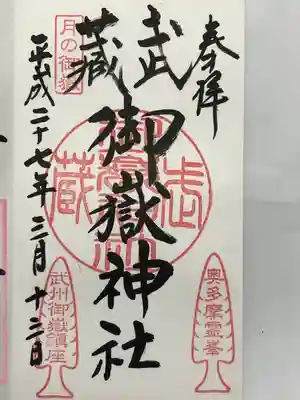 奉拝
武蔵
御嶽神社
月の御嶽
平成二十七年三月十三日
奥多摩霊峯
武州御嶽鎮座